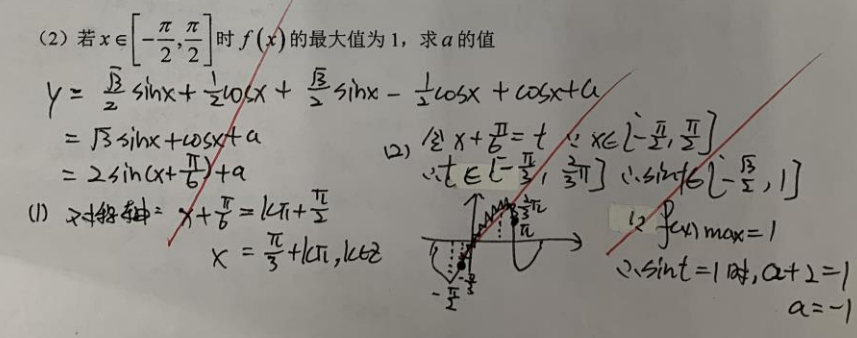 (2) 若 x∈[-π/2, π/2] 时 f(x) 的最大值为 1，求 a 的值
y = √3/2 sinx + 1/2 cosx + √3/2 sinx - 1/2 cosx + cosx + a
= √3 sinx + cosx + a
= 2sin(x+π/6)+a
(1) 对称轴: x+π/6=kπ+π/2
x = π/3+kπ, k∈Z
(2) 令 x+π/6=t ∵ x∈[-π/2, π/2]
∴t∈[-π/3, 2/3π] ∴sint∈[-√3/2, 1]
2/3π
π
-π/3
-π/2
∵ f(x)max=1
∴sint=1时, a+2=1
a=-1